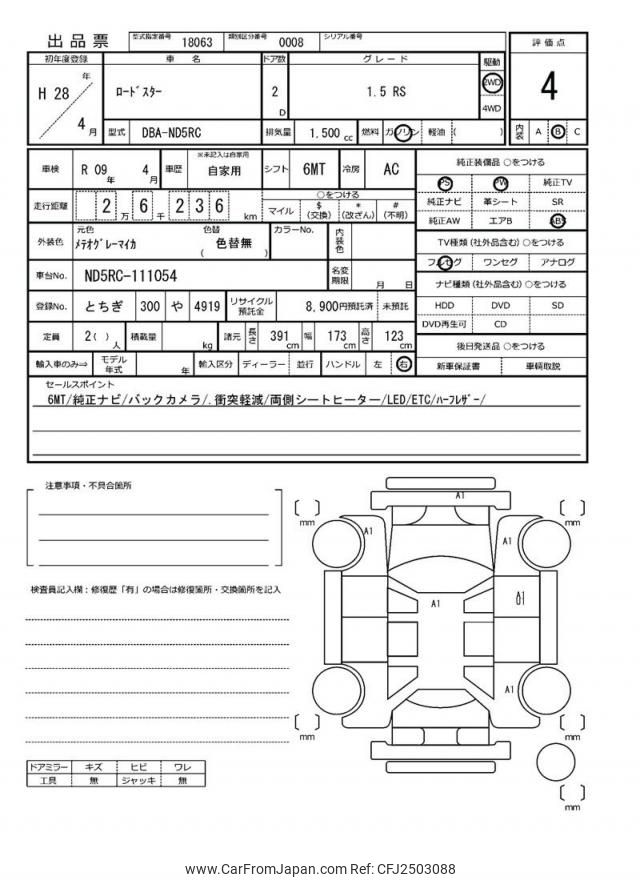 出品票
型式指定番号 18063 類別区分番号 0008 シリアル番号
初年度登録 車名 ドア数 グレード 駆動 評価点
H 28 年 4 月
ロードスター 2 D 1.5 RS 2WD 4WD
4
型式 DBA-ND5RC 排気量 1,500 cc 燃料 ガソリン 軽油 ( )
内装 A B C
車検 R 09 年 4 月 車歴 ※未記入は自家用 自家用 シフト 6MT 冷房 AC
走行距離 2 万 6 千 2 3 6 km
○をつける
マイル $ (交換) * (改ざん) # (不明)
外装色 元色 メテオグレーマイカ 色替 ( 色替無 ) カラーNo. 内装色
車台No. ND5RC-111054 名変期限 月 日
登録No. とちぎ 300 や 4919 リサイクル預託金 8,900円預託済 未預託
定員 2 ( ) 人 積載量 kg 諸元 長さ 391 cm 幅 173 cm 高さ 123 cm
輸入車のみ⇒ モデル年式 年 輸入区分 ディーラー 並行 ハンドル 左 右
純正装備品 ○をつける
PS PW 純正TV
純正ナビ 革シート SR
純正AW エアB ABS
TV種類 (社外品含む) ○をつける
フルセグ ワンセグ アナログ
ナビ種類 (社外品含む) ○をつける
HDD DVD SD
DVD再生可 CD
後日発送品 ○をつける
新車保証書 車輌取説
セールスポイント
6MT/純正ナビ/バックカメラ/.衝突軽減/両側シートヒーター/LED/ETC/ハーフレザー/
注意事項・不具合箇所
検査員記入欄：修復歴「有」の場合は修復箇所・交換箇所を記入
ドアミラー キズ ヒビ ワレ
工具 無 ジャッキ 無
A1
mm mm
A1 A1
A1 A1
U1
A1
mm mm
mm
www.CarFromJapan.com Ref: CFJ2503088